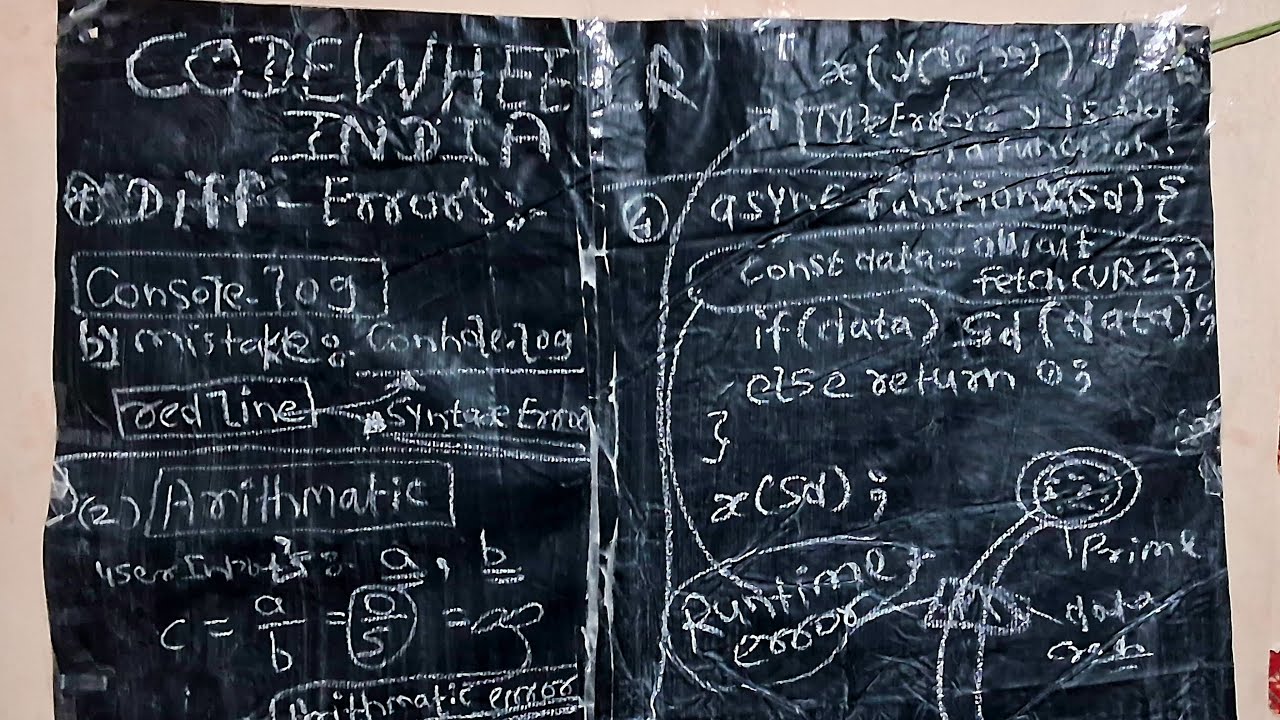 CODEWHEELER
INDIA
* Diff Errors:-
Console.log
by mistake: Conhole.log
red line
Syntax Error
(2) Arithmatic
user Inputs: a, b
c = a/b = 0/5 = ∞
Arithmatic error
x(y(
Type Error: y is not
a function.
4 async function x(sd) {
const data =
fetch(URL);
if(data) sd(data);
else return 0;
}
x(sd);
Prime
Runtime
error
data
crash